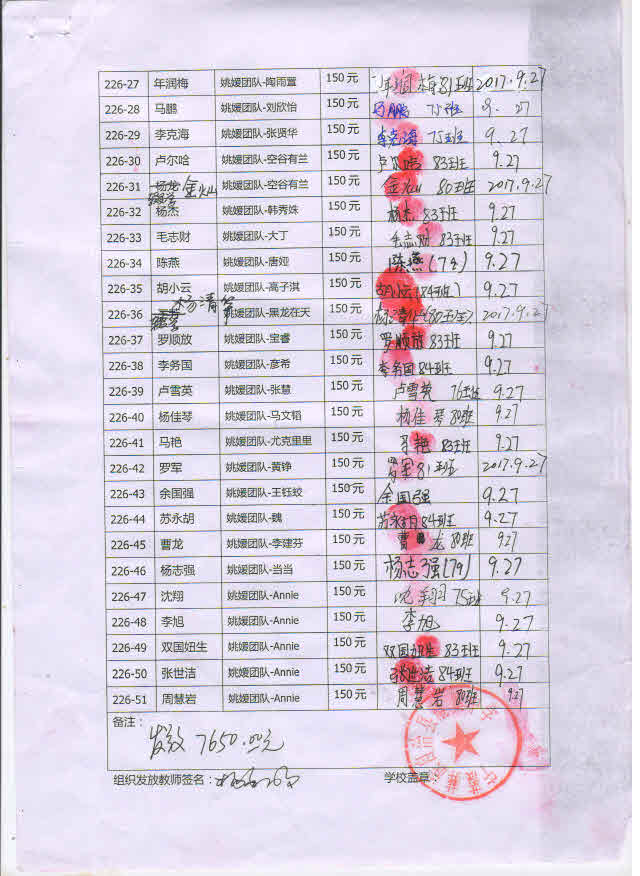 226-27 年润梅 姚媛团队-陶雨萱 150元 年润梅 81班 2017.9.27
226-28 马鹏 姚媛团队-刘欣怡 150元 马鹏 75班 9.27
226-29 李克海 姚媛团队-张贤华 150元 李克海 75班 9.27
226-30 卢尔哈 姚媛团队-空谷有兰 150元 卢尔哈 83班 9.27
226-31 杨龙 金灿 姚媛团队-空谷有兰 150元 金灿 80班 2017.9.27
226-32 杨杰 姚媛团队-韩秀姝 150元 杨杰 83班 9.27
226-33 毛志财 姚媛团队-大丁 150元 毛志财 83班 9.27
226-34 陈燕 姚媛团队-唐娅 150元 陈燕(79) 9.27
226-35 胡小云 姚媛团队-高子淇 150元 胡小云(84班) 9.27
226-36 杨清华 姚媛团队-黑龙在天 150元 杨清华(80班) 2017.9.27
226-37 罗顺放 姚媛团队-宝睿 150元 罗顺放 83班 9.27
226-38 李务国 姚媛团队-彦希 150元 李务国 84班 9.27
226-39 卢雪英 姚媛团队-张慧 150元 卢雪英 76班 9.27
226-40 杨佳琴 姚媛团队-马文韬 150元 杨佳琴 80班 9.27
226-41 马艳 姚媛团队-尤克里里 150元 马艳 83班 9.27
226-42 罗军 姚媛团队-黄铮 150元 罗军 81班 2017.9.27
226-43 余国强 姚媛团队-王钰蛟 150元 余国强 9.27
226-44 苏永胡 姚媛团队-魏 150元 苏永胡 84班 9.27
226-45 曹龙 姚媛团队-李建芬 150元 曹龙 80班 9.27
226-46 杨志强 姚媛团队-当当 150元 杨志强(79) 9.27
226-47 沈翔 姚媛团队-Annie 150元 沈翔 75班 9.27
226-48 李旭 姚媛团队-Annie 150元 李旭 9.27
226-49 双国妞生 姚媛团队-Annie 150元 双国妞生 83班 9.27
226-50 张世洁 姚媛团队-Annie 150元 张世洁 84班 9.27
226-51 周慧岩 姚媛团队-Annie 150元 周慧岩 80班 9.27
备注：
发放 7650.00元
组织发放教师签名： 学校盖章：